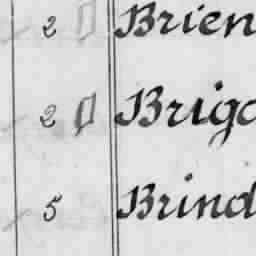 2 Brien
2 Brigo
5 Brind